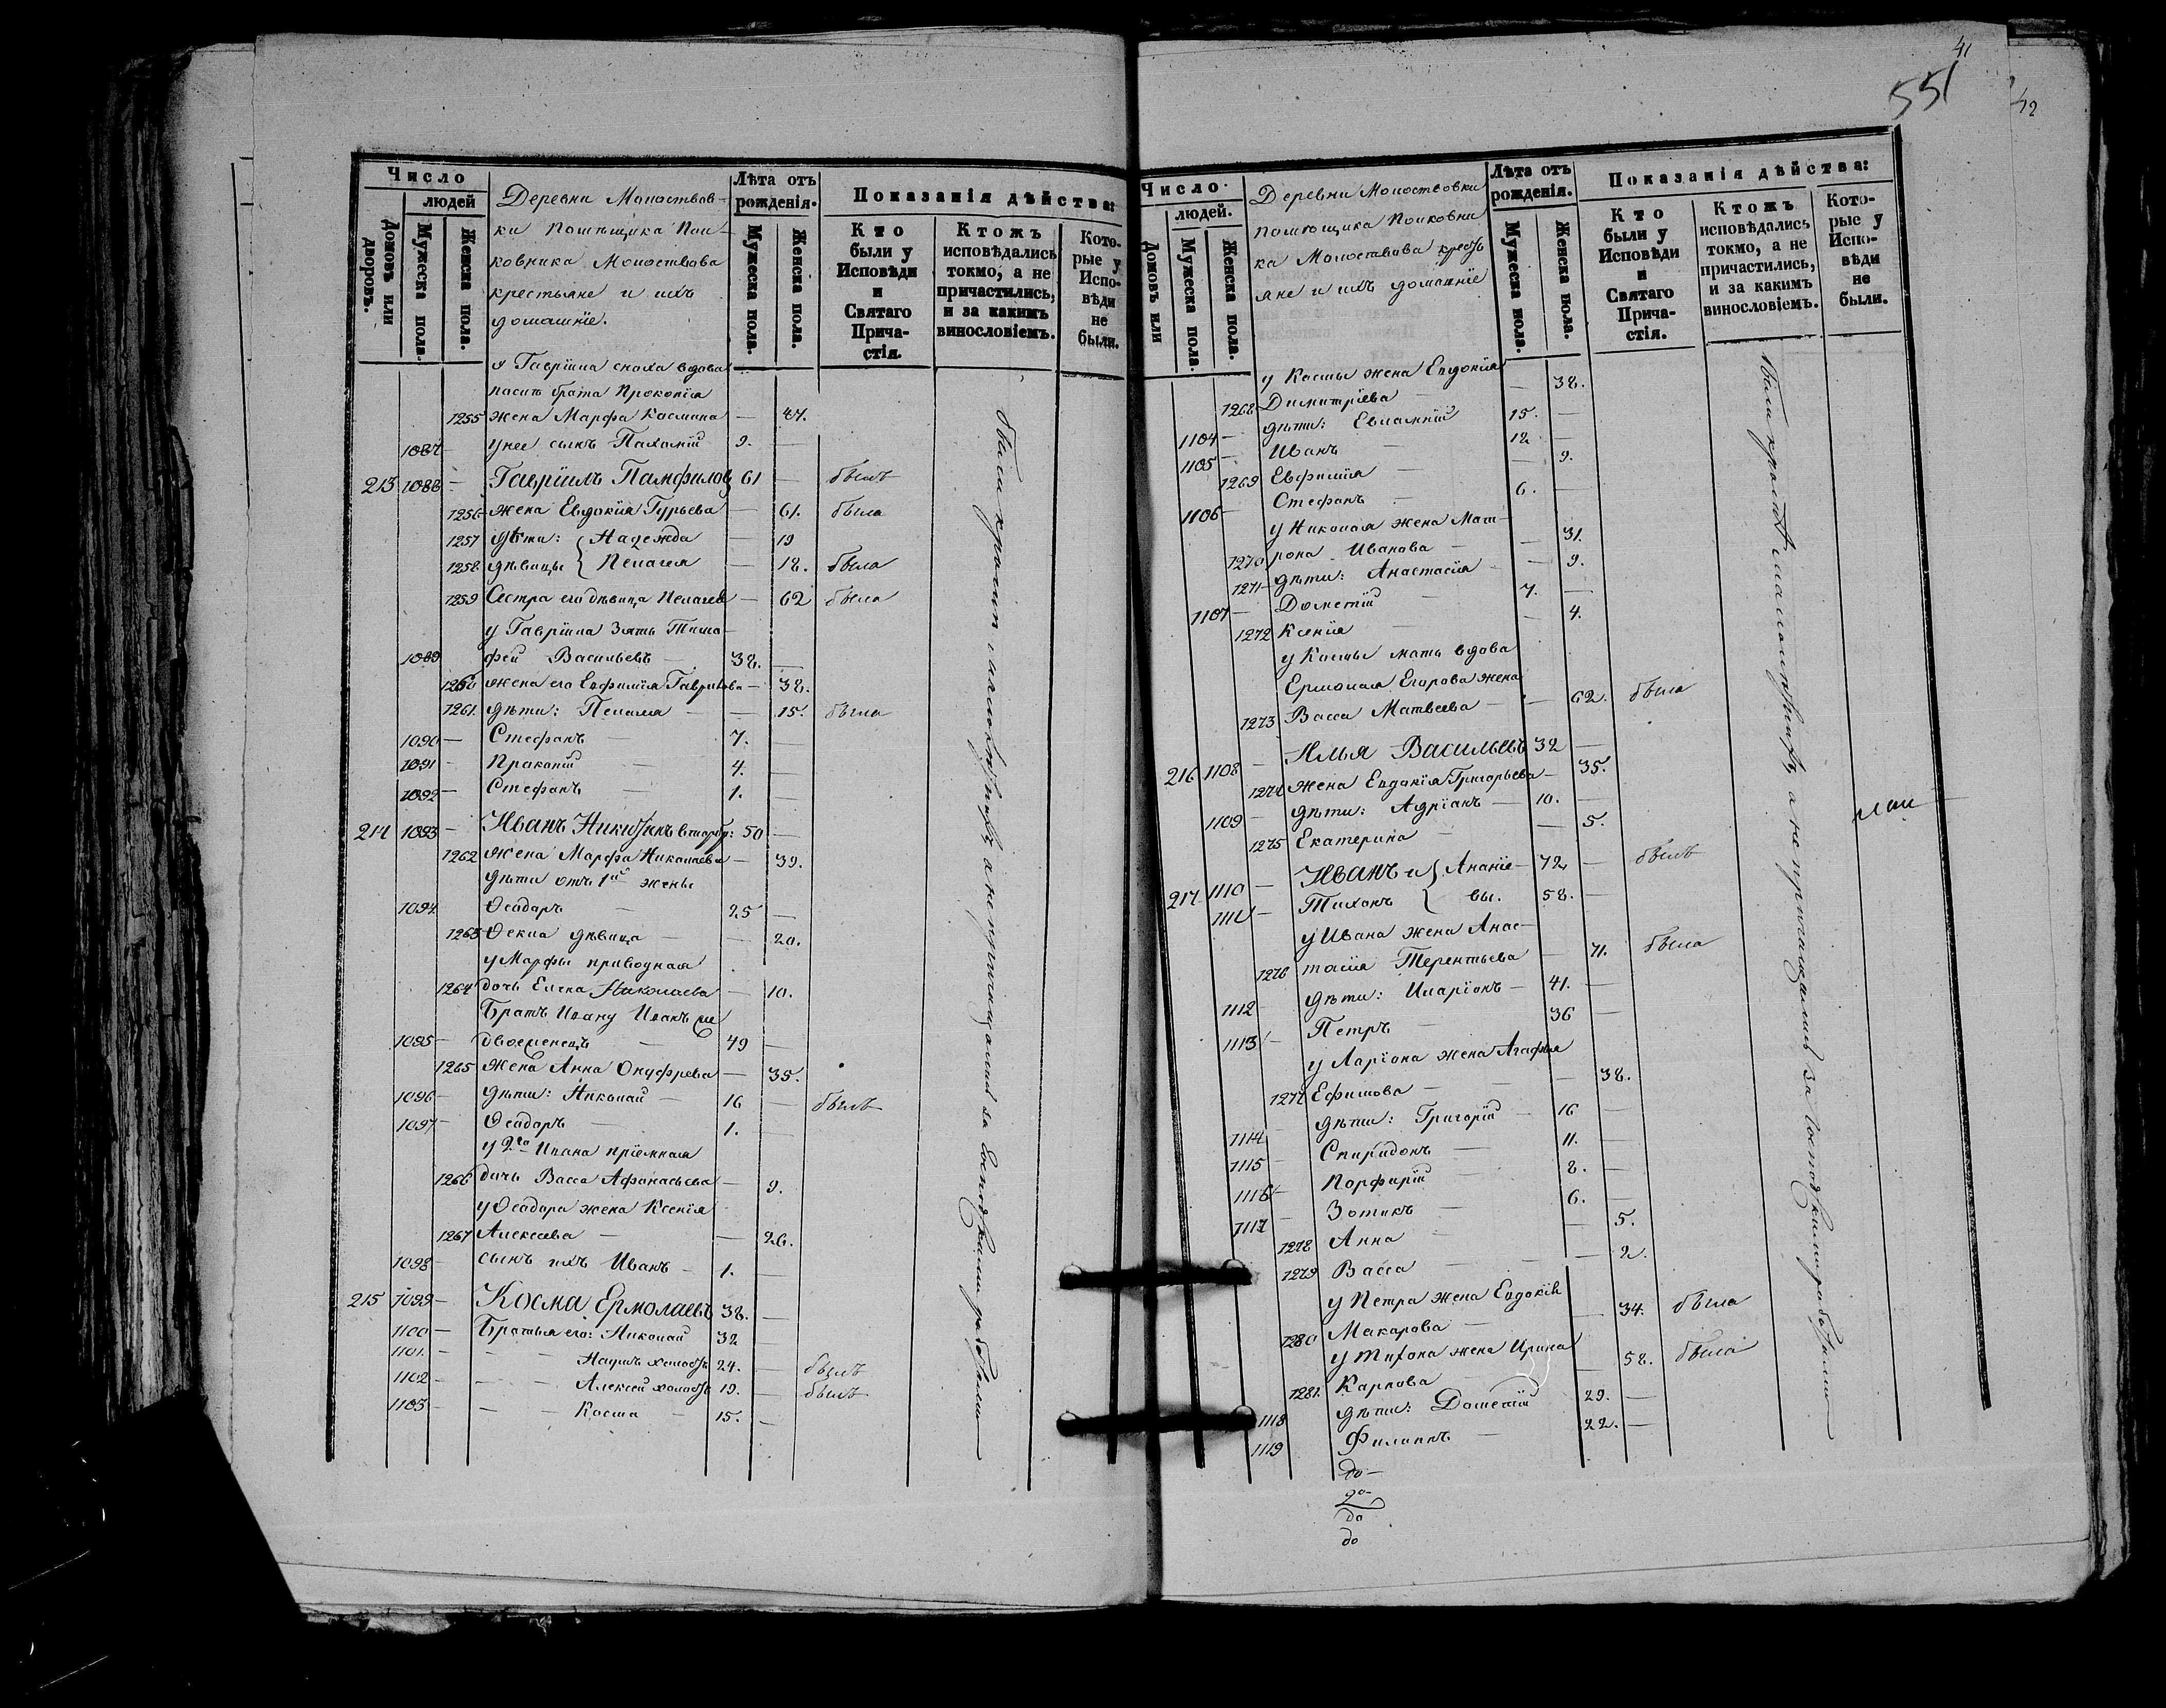 41
551
42
Число
людей
Домовъ или дворовъ.
Мужеска пола.
Женска пола.
Деревни Молоствов-
ки Помѣщика Пол-
ковника Молоствова
крестьяне и ихъ
домашнiе.
Лѣта отъ рожденiя.
Мужеска пола.
Женска пола.
Показанiя дѣйства:
Кто были у Исповѣди и Святаго Прича-стiя.
Ктожъ исповѣдались токмо, а не причастились, и за какимъ винословiемъ.
Кото-рые у Испо-вѣди не были.
у Гаврiила сноха вдова
брата Прокопiя
1255 жена Марфа Касмина — 47.
1087 — у нее сынъ Пахомiй 9. —
213 1088 — Гаврiилъ Памфиловъ 61 — былъ
1256 жена Евдокiя Гурьева — 61. была
1257 дѣти: Надежда — 19
1258 дѣвицы Пелагея — 18. была
1259 Сестра его дѣвица Пелагея — 62 была
у Гаврiила Зять Тимо-
1089 фей Васильевъ — 38. —
1260 жена его Евфимiя Гаврилова — 38.
1261. дѣти: Пелагея — 15. была
1090 — Стефанъ — 7. —
1091 — Прокопiй — 4. —
1092 — Стефанъ — 1. —
214 1093 — Иванъ Никитинъ 50 —
1262 жена Марфа Николаева — 39.
дѣти отъ 1й жены
1094 Ѳеодоръ — 25 —
1263 Ѳекла дѣвица — 20.
у Марфы приводная
1264 дочь Елена Николаева — 10.
Братъ Ивану Иванъ же
1095 — 49 —
1265 жена Анна Онуфрева — 35.
1096 — дѣти: Николай — 16 — былъ
1097 — Ѳеодоръ — 1. —
у 2го Ивана прiемная
1266 дочь Васса Афонасьева — 9.
у Ѳеодора жена Ксенiя
1267 Алексеева — 26.
1098 — сынъ ихъ Иванъ — 1. —
215 1099 — Косма Ермолаевъ 38. —
1100 — Братья его: Николай 32
1101. — Наумъ холостъ 24. — былъ
1102 — Алексей холостъ 19. — былъ
1103 — Косма — 15. —
были кромѣ а не причащались за господскими работами
Число
людей.
Домовъ или
Мужеска пола.
Женска пола.
Деревни Молоствовки
помѣщика Полковни
ка Молоствова кресть
яне и ихъ домашнiе
Лѣта отъ рожденiя.
Мужеска пола.
Женска пола.
Показанiя дѣйства:
Кто были у Исповѣди и Святаго Прича-стiя.
Ктожъ исповѣдались токмо, а не причастились, и за какимъ винословiемъ.
Кото-рые у Испо-вѣди не были.
у Космы жена Евдокiя
1268 Димитрiева — 38.
1104 — дѣти: Евлампiй 15. —
1105 — Иванъ — 12 —
1269 Евфимiя — 9.
1106 — Стефанъ — 6. —
у Николая жена Мат-
1270 рона Иванова — 31.
1271 дѣти: Анастасiя — 9.
1107 — Дометiй — 7. —
1272 Ксенiя — 4.
у Космы мать вдова
Ермолая Егорова жена
1273 Васса Матвеева — 62. была
216 1108 — Илья Васильевъ 32 —
1274 жена Евдокiя Григорьева — 35.
1109 — дѣти: Адрiанъ — 10. —
1275 Екатерина — 5.
217 1110 — Иванъ и Ананiе- 72 — былъ
1111 — Тихонъ вы. 58. —
у Ивана жена Анас-
1276 тасiя Терентьева — 71. была
1112 — дѣти: Иларiонъ — 41. —
1113 — Петръ — 36 —
у Ларiона жена Агафья
1277 Ефимова — 38.
1114 — дѣти: Григорiй — 16 —
1115 — Спиридонъ — 11. —
1116 — Порфирiй 8. —
1117 — Зотикъ — 6. —
1278 Анна — 5.
1279 Васса — 2.
у Петра жена Евдокiя
1280 Макарова — 34. была
у Тихона жена Ирина
1281. Карпова — 58. была
1118 дѣти: Дометiй 29. —
1119 Филиппъ — 22. —
до
до
до
были кромѣ а не причащались за господскими работами